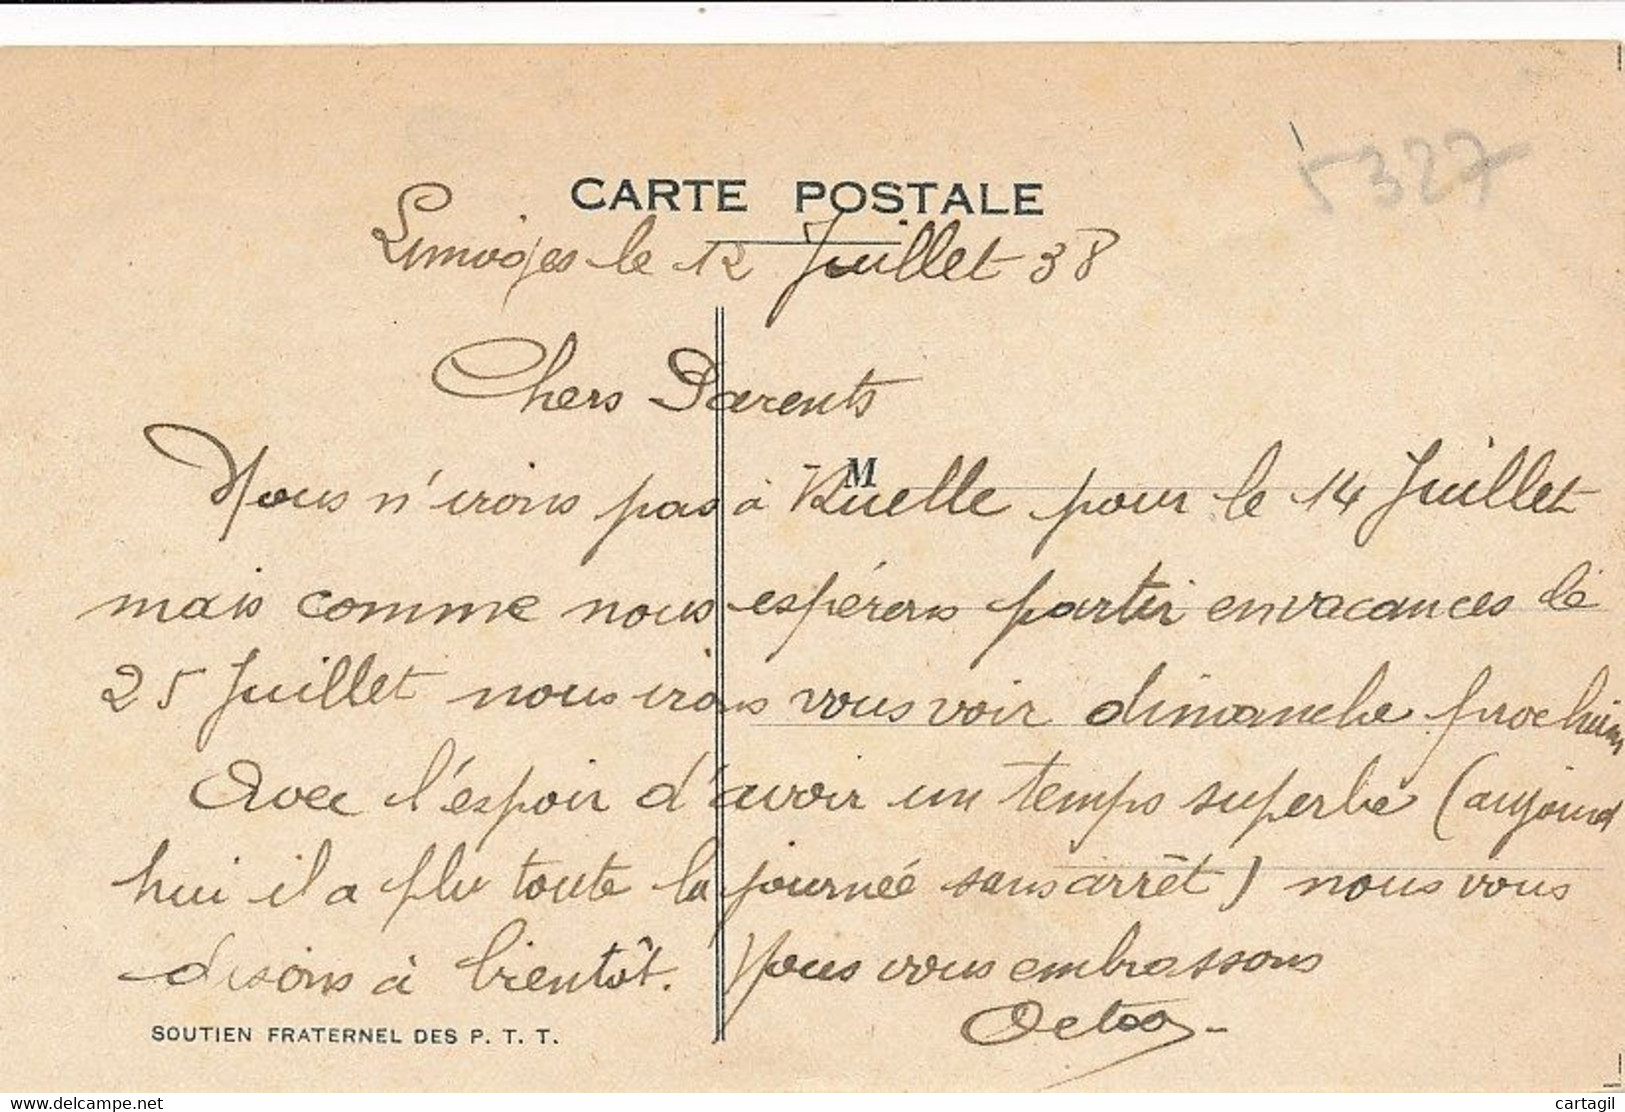 5327
CARTE POSTALE
Limoges le 12 Juillet 38
Chers Parents
M
Nous n'irons pas à Ruelle pour le 14 Juillet
mais comme nous espérons partir en vacances le
25 Juillet nous irons vous voir dimanche prochain
Avec l'espoir d'avoir un temps superbe (aujourd
hui il a plu toute la journée sans arrêt) nous vous
disons à bientôt. Nous vous embrassons
SOUTIEN FRATERNEL DES P. T. T.
www.delcampe.net
cartagil